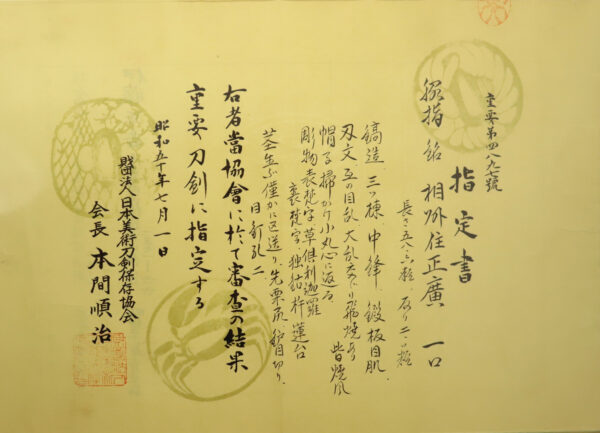 重要第四八九七號
指定書
脇指 銘 相州住正廣 一口
長さ五八・六糎、反り二・一糎
鎬造、三ツ棟、中鋒、鍛板目肌
刃文 互の目乱 大乱交り飛焼あり 皆焼風
帽子 掃かけ小丸心に返る
彫物 表梵字草倶利迦羅
裏梵字、独鈷杵蓮台
茎 生ぶ 僅かに区送り、先栗尻、鑢目切り、
目釘孔二
右者當協會に於て審査の結果
重要刀剣に指定する
昭和五十年七月一日
財団法人日本美術刀剣保存協会
会長 本間順治